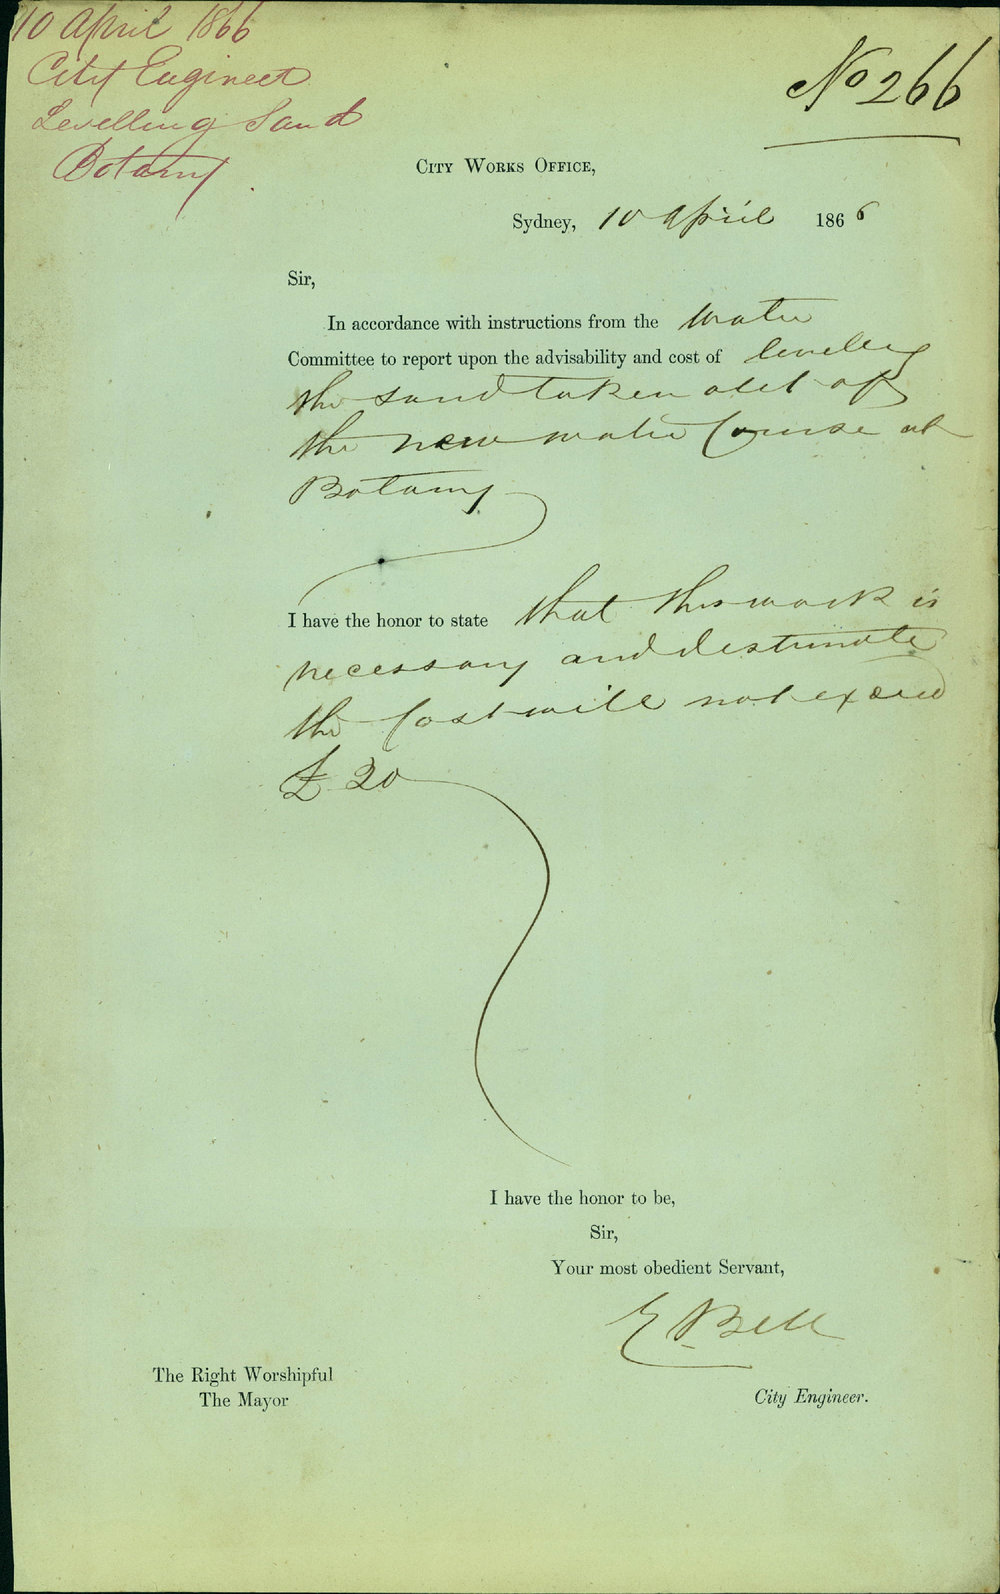 10 April 1866
City Engineer
Levelling Sand
Botany
No 266
City Works Office,
Sydney, 10 April 1866
Sir,
In accordance with instructions from the Water
Committee to report upon the advisability and cost of levelling
the sand taken out of
the new water Course at
Botany
I have the honor to state that this work is
necessary and I estimate
the Cost will not exceed
£20
I have the honor to be,
Sir,
Your most obedient Servant,
E Bell
The Right Worshipful
The Mayor
City Engineer.